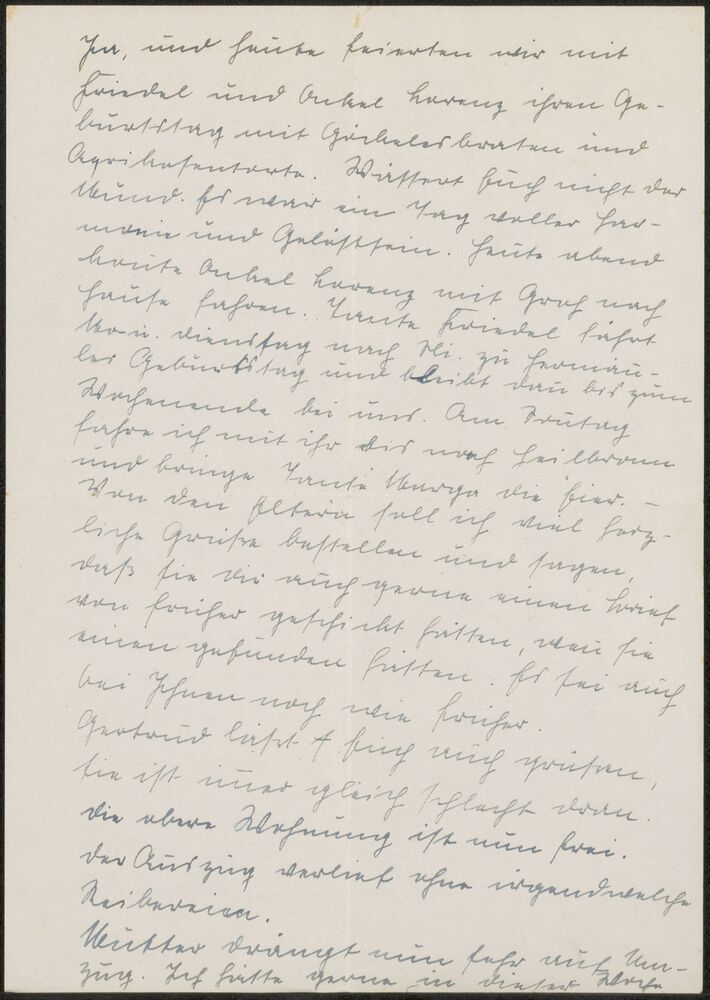 Ja, und heute feierten wir mit
Friedel und Onkel Lorenz ihren Ge-
burtstag mit Göckelesbraten und
Aprikosentorte. Wässert Euch nicht der
Mund. Es war ein Tag voller Har-
monie und Gelöstsein. Heute abend
konnte Onkel Lorenz mit Groß nach
Hause fahren. Tante Friedel fährt
Mo. u. Dienstag nach Hl. zu Hermän-
les Geburtstag und bleibt dan bis zum
Wochenende bei uns. Am Freitag
fahre ich mit ihr bis nach Heilbronn
und bringe Tante Marga die Eier. –
Von den Eltern soll ich viel herz-
liche Grüße bestellen und sagen,
daß sie Dir auch gerne einen Brief
von früher geschickt hätten, wen sie
einen gefunden hätten. Es sei auch
bei Ihnen noch wie früher.
Gertrud läßt Euch auch grüßen,
sie ist imer gleich schlecht dran.
Die obere Wohnung ist nun frei.
Der Auszug verlief ohne irgendwelche
Reibereien.
Mutter drängt nun sehr auf Um-
zug. Ich hätte gerne in dieser Woche